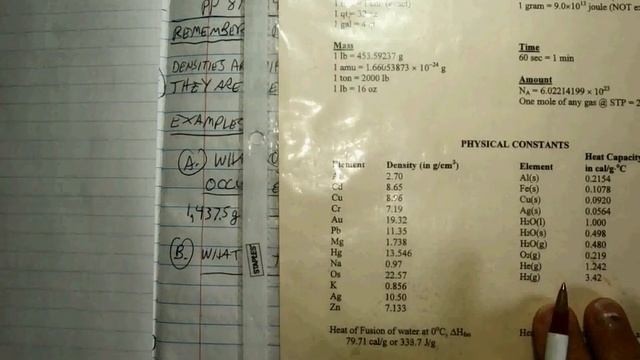 PP
REMEMBER
DENSITIES
THEY ARE
EXAMPLES
A.
OCCU
1,437.5 g
B. WHAT
STAPLES
1 gal = 4
1 gram = 9.0×10¹³ joule (NOT
Mass
1 lb = 453.59237 g
1 amu = 1.66053873 × 10⁻²⁴ g
1 ton = 2000 lb
1 lb = 16 oz
Time
60 sec = 1 min
Amount
N_A = 6.02214199 × 10²³
One mole of any gas @ STP = 2
PHYSICAL CONSTANTS
Element Density (in g/cm³)
2.70
Cd 8.65
Cu 8.96
Cr 7.19
Au 19.32
Pb 11.35
Mg 1.738
Hg 13.546
Na 0.97
Os 22.57
K 0.856
Ag 10.50
Zn 7.133
Element Heat Capacity in cal/g·°C
Al(s) 0.2154
Fe(s) 0.1078
Cu(s) 0.0920
Ag(s) 0.0564
H₂O(l) 1.000
H₂O(s) 0.498
H₂O(g) 0.480
O₂(g) 0.219
He(g) 1.242
H₂(g) 3.42
Heat of Fusion of water at 0°C, ΔHfus
79.71 cal/g or 338.7 J/g